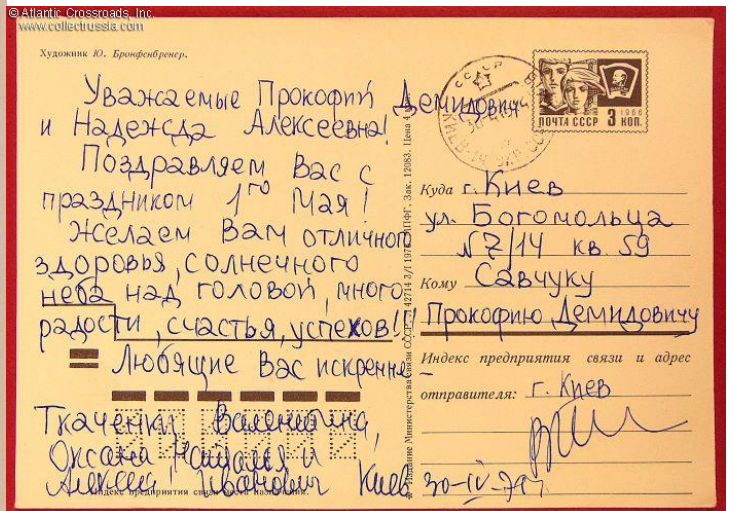 © Atlantic Crossroads, Inc.
www.collectrussia.com
Художник Ю. Бронфенбренер.
Уважаемые Прокофий Демидович
и Надежда Алексеевна!
Поздравляем Вас с
праздником 1го Мая!
Желаем Вам отличного
здоровья, солнечного
неба над головой, много
радости, счастья, успехов!!!
= Любящие Вас искренне –
Ткаченки Валентина,
Оксана Наталья и
Алексей Иванович Киев 30-IV-
Индекс предприятия связи места назначения.
Издание Министерства связи СССР. 42714 3/I Зак. 12083. Цена 4
СССР
ПОЧТА СССР 3 КОП.
1966
Куда г. Киев
ул. Богомольца
№7/14 кв. 59
Кому Савчуку
Прокофию Демидовичу
Индекс предприятия связи и адрес
отправителя: г. Киев